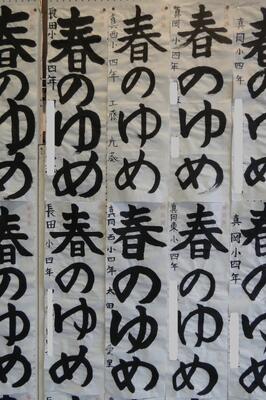 春のゆめ
春のゆめ
長田小四年
春のゆめ
真西小四年
春のゆめ
真岡小四年
春のゆめ
真岡小四年
春のゆめ
春のゆめ
長田小四年
春のゆめ
真岡西小四年
春のゆめ
真岡東小四年
春のゆめ
真岡小四年